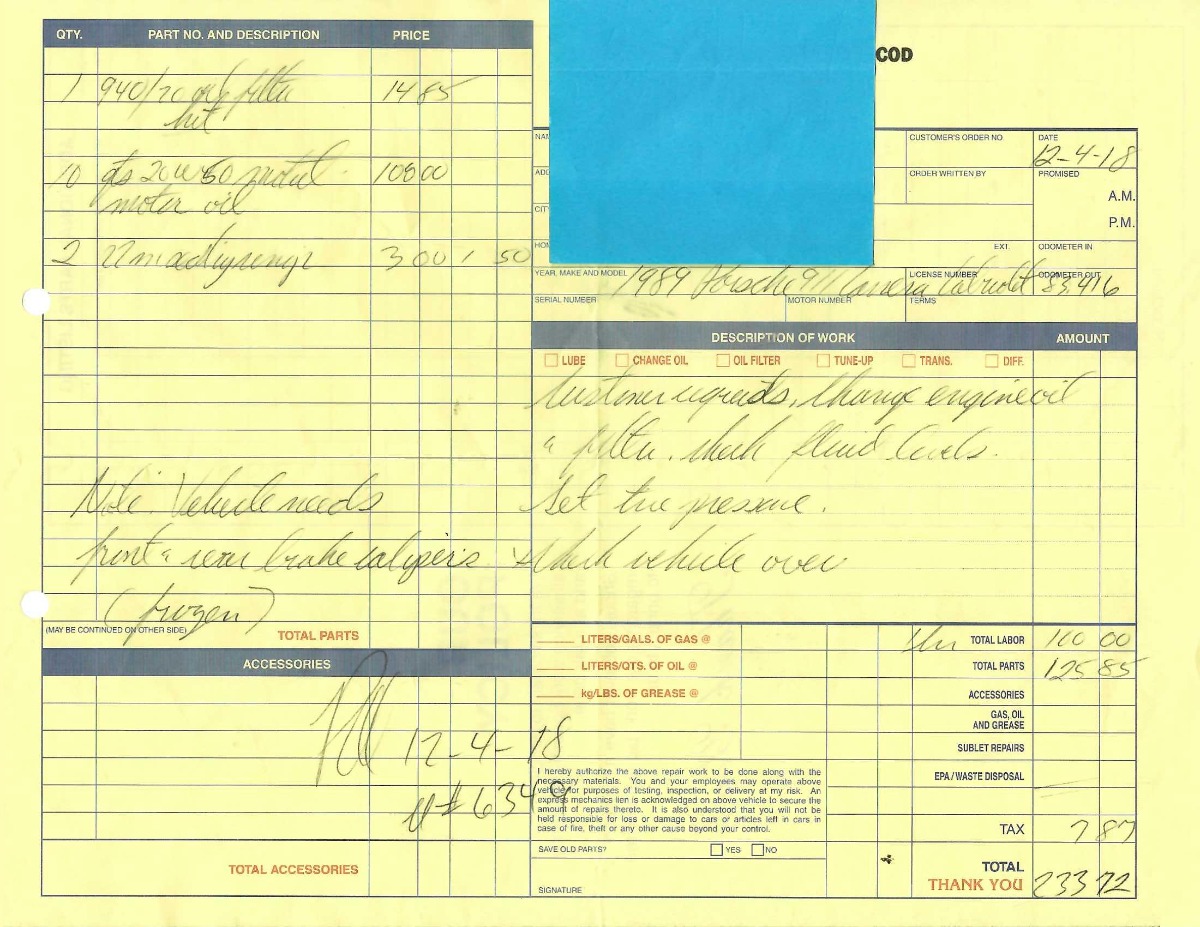 COD
QTY. PART NO. AND DESCRIPTION PRICE
1 940/20 oil filter 14 85
kit
10 qts 20W50 motul 108 00
motor oil
2 3 00 1 50
Note: Vehicle needs
front & rear brake calipers
(frozen)
(MAY BE CONTINUED ON OTHER SIDE) TOTAL PARTS
ACCESSORIES
12-4-18
# 6349
TOTAL ACCESSORIES
CUSTOMER'S ORDER NO.
DATE
12-4-18
ORDER WRITTEN BY
PROMISED
A.M.
P.M.
EXT.
ODOMETER IN
YEAR, MAKE AND MODEL 1989 Porsche 911 Carrera Cabriolet
LICENSE NUMBER
ODOMETER OUT 83,416
SERIAL NUMBER
MOTOR NUMBER
TERMS
DESCRIPTION OF WORK AMOUNT
LUBE CHANGE OIL OIL FILTER TUNE-UP TRANS. DIFF.
Customer requests, Change engine oil
& filter. check fluid levels.
Set tire pressure.
check vehicle over
LITERS/GALS. OF GAS @
LITERS/QTS. OF OIL @
kg/LBS. OF GREASE @
1hr TOTAL LABOR 100 00
TOTAL PARTS 125 85
ACCESSORIES
GAS, OIL
AND GREASE
SUBLET REPAIRS
EPA / WASTE DISPOSAL
TAX 7 87
TOTAL
THANK YOU 233 72
I hereby authorize the above repair work to be done along with the
necessary materials. You and your employees may operate above
vehicle for purposes of testing, inspection, or delivery at my risk. An
express mechanics lien is acknowledged on above vehicle to secure the
amount of repairs thereto. It is also understood that you will not be
held responsible for loss or damage to cars or articles left in cars in
case of fire, theft or any other cause beyond your control.
SAVE OLD PARTS? YES NO
SIGNATURE